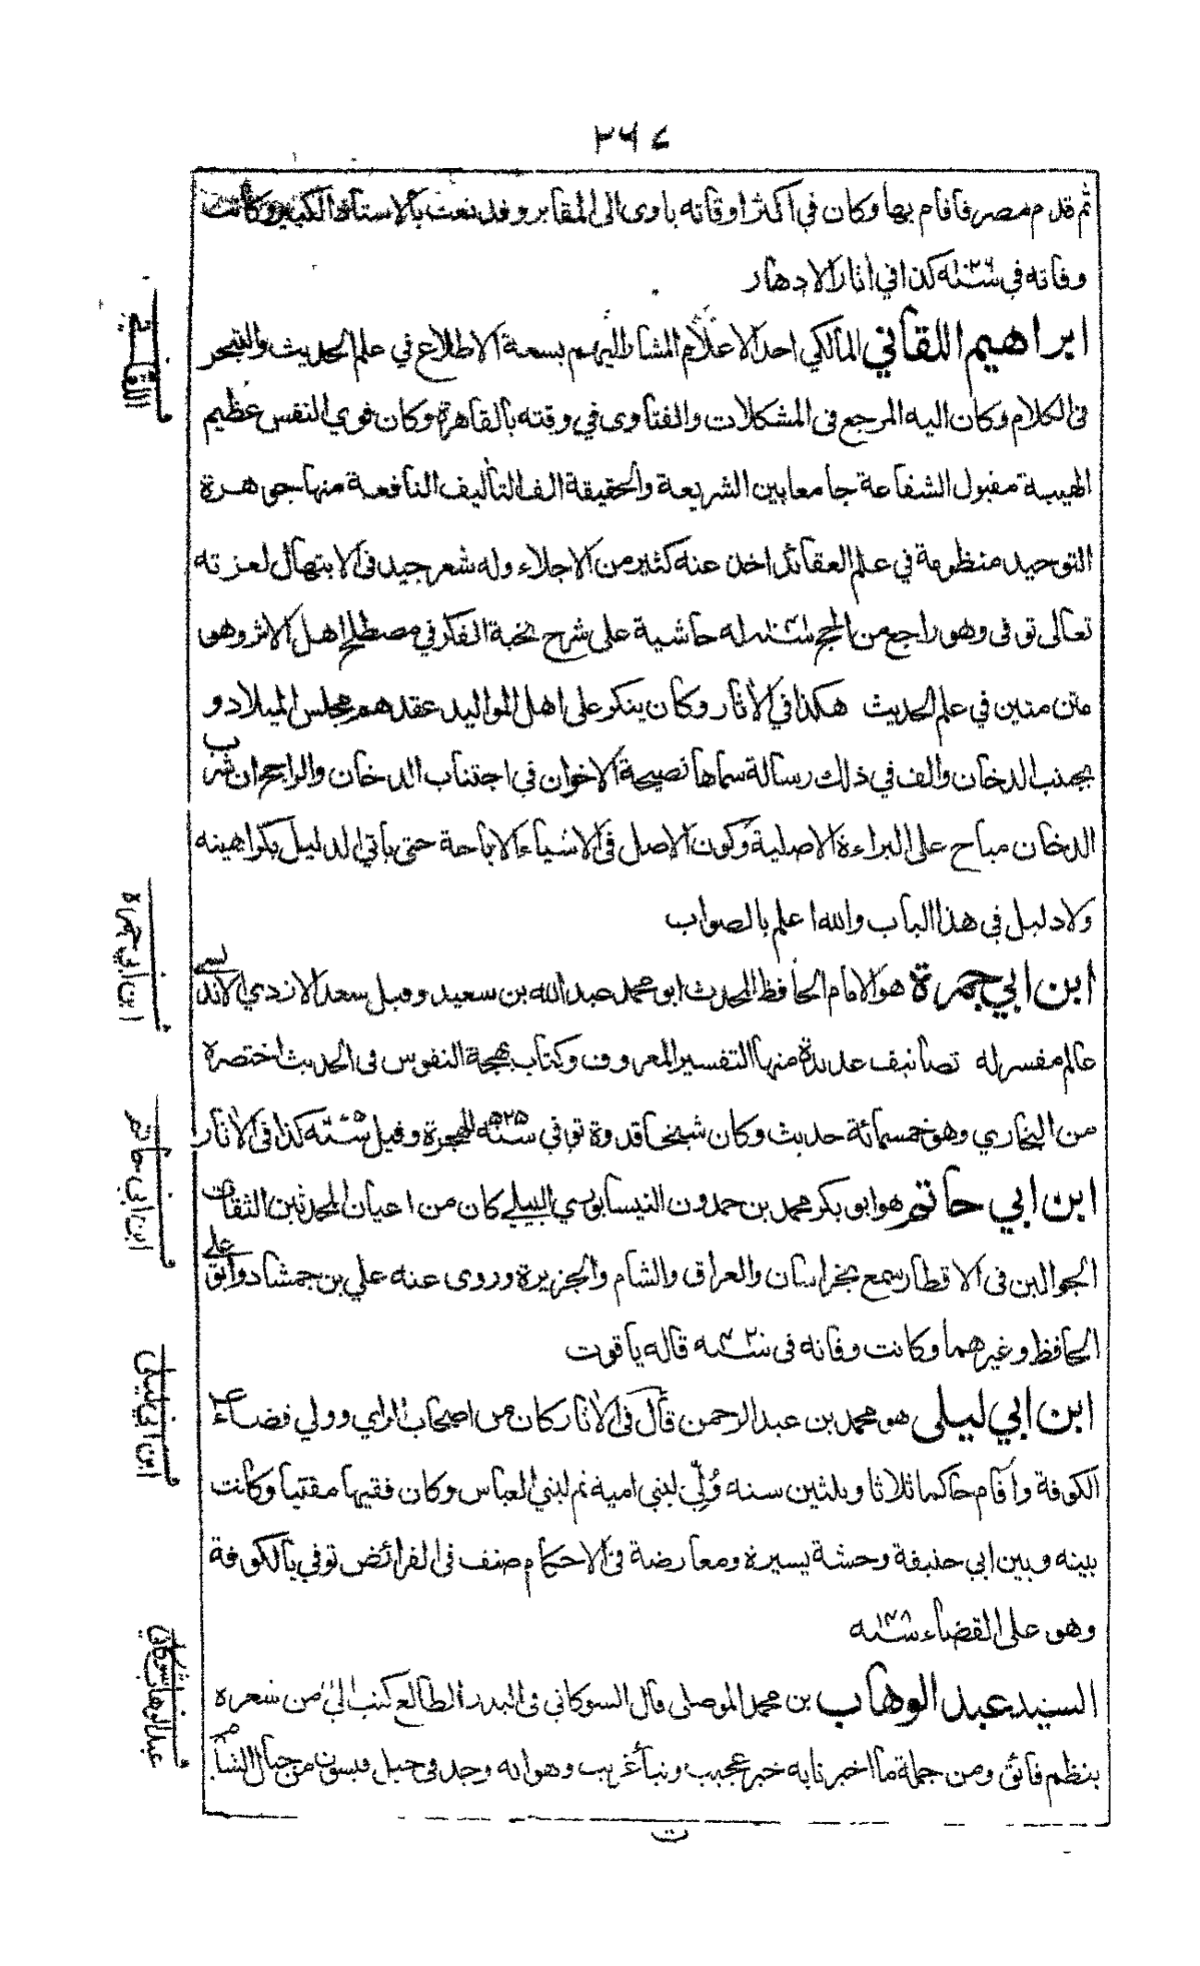 ٢٦٤
ثم قدم مصر فاقام بها وكان في اكثر اوقاته ياوى الى المقابر وقد نعت بالاستاذ الكبير وكانت
وفاته في سنه كذا في اثار الادهار
ابراهيم اللقاني المالكي احد الاعلام المشار اليهم بسعة الاطلاع في علم الحديث والتبحر
فى الكلام وكان اليه المرجع فى المشكلات والفتاوى في وقته بالقاهرة وكان قوي النفس عظيم
الهيبة مقبول الشفاعة جامعا بين الشريعة والحقيقة الف التاليف النافعة منها جوهرة
التوحيد منظومة في علم العقائد اخذ عنه كثير من الاجلاء وله شعر جيد فى الابتهال لعزته
تعالى توفى وهو راجع من الحج سنه له حاشية على شرح نخبة الفكر في مصطلح اهل الاثر وهو
متن متين في علم الحديث هكذا في الاثار وكان ينكر على اهل المواليد عقدهم مجلس الميلاد و
يجتنب الدخان والف في ذلك رسالة سماها نصيحة الاخوان في اجتناب الدخان والراجح ان شرب
الدخان مباح على البراءة الاصلية وكون الاصل فى الاشياء الاباحة حتى ياتي الدليل بكراهيته
ولا دليل في هذا الباب والله اعلم بالصواب
ابن ابي جمرة هو الامام الحافظ المحدث ابو محمد عبد الله بن سعيد وقيل سعد الازدي الاندلسي
عالم مفسر له تصانيف عديدة منها التفسير المعروف وكتاب بهجة النفوس فى الحديث اختصره
من البخاري وهو خمسمائة حديث وكان شيخا قدوة توفي سنه ٥٢٥ للهجرة وقيل سنه كذا فى الاثار
ابن ابي حاتم هو ابو بكر محمد بن حمدون النيسابوري البيلي كان من اعيان المحدثين الثقات
الجوالين فى الاقطار سمع بخراسان والعراق والشام والجزيرة وروى عنه علي بن جمشاد وابو علي
الحافظ وغيرهما وكانت وفاته فى سنه ٣٢٠ قاله ياقوت
ابن ابي ليلى هو محمد بن عبد الرحمن قال فى الاثار كان من اصحاب الراي وولي قضاء
الكوفة واقام حاكما ثلاثا وثلثين سنه وُلِّي لبنى امية ثم لبني العباس وكان فقيها مفتيا وكانت
بينه وبين ابي حنيفة وحشة يسيرة ومعارضة فى الاحكام صنف فى الفرائض توفي بالكوفة
وهو على القضاء سنه ١٤٨
السيد عبد الوهاب بن محمد الموصلى قال الشوكاني فى البدر الطالع كتب الي من شعره
بنظم فائق ومن جملة ما اخبرنا به خبر عجيب ونبأ غريب وهو انه وجد في جبل من جبال الشام
ت
اللقاني
ابن ابي جمرة
ابن ابى حاتم
ابن ابي ليلى
عبد الوهاب